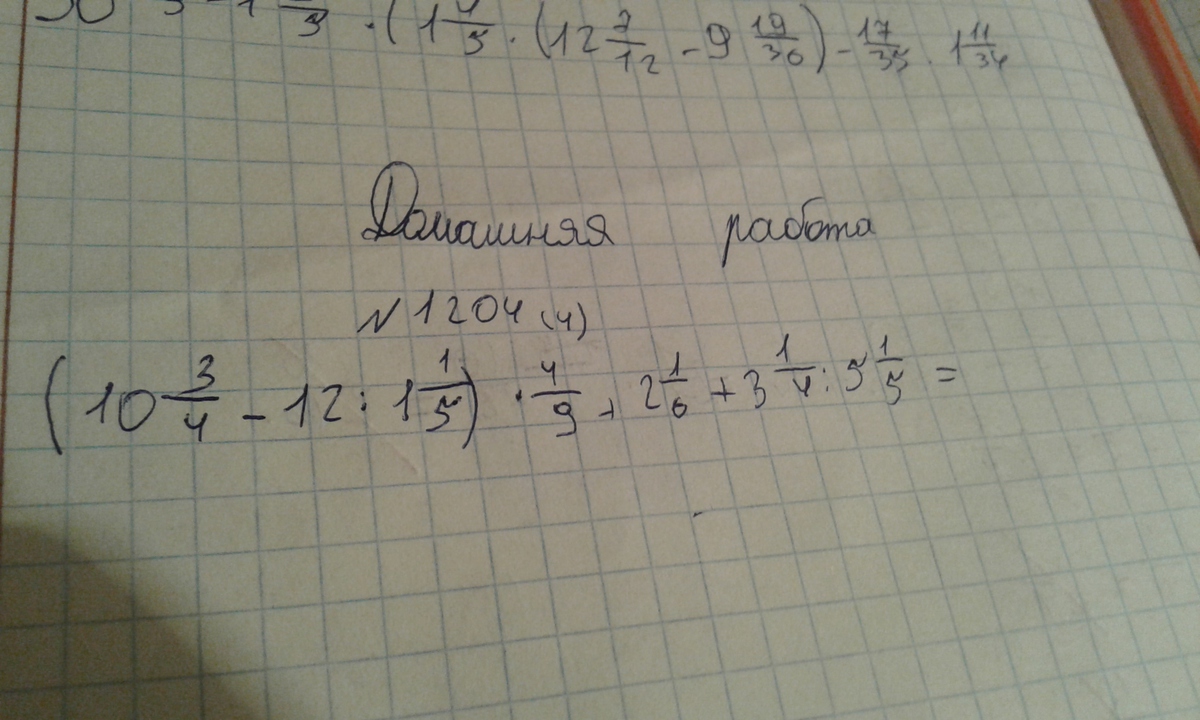 · (1 4/5 · (12 7/12 - 9 19/36) - 17/35 · 1 11/34
Домашняя работа
№1204 (4)
(10 3/4 - 12 : 1 1/5) · 4/9 + 2 1/6 + 3 1/4 : 5 1/5 =